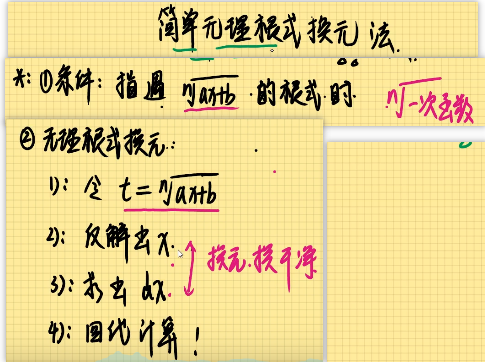 简单无理根式换元法.
*: ①条件: 指遇 ⁿ√(ax+b) 的根式.时 ⁿ√一次函数
② 无理根式换元:
1): 令 t = ⁿ√(ax+b)
2): 反解出 x.
换元.换干净
3): 求出 dx.
4): 回代计算!